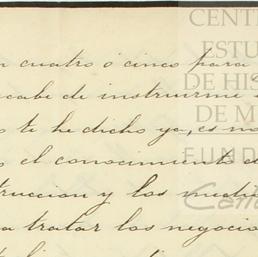 CENT
ESTU
DE HIS
DE M
FUND
n cuatro ó cinco para
cabe de instruirme
s te he dicho ya, es no
s el conocimiento d
truccion y los medi
a tratar los negocio